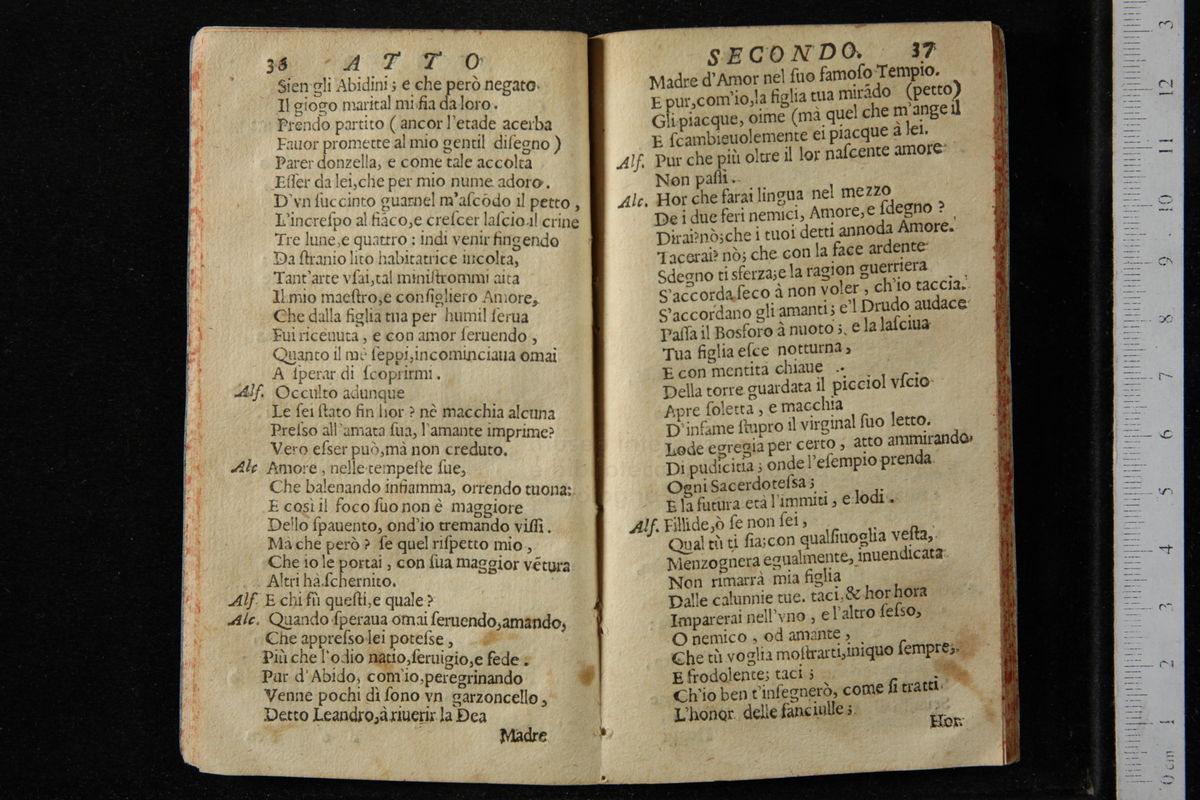 36 ATTO
Sien gli Abidini; e che però negato
Il giogo marital mi fia da loro.
Prendo partito (ancor l'etade acerba
Fauor promette al mio gentil diſegno)
Parer donzella, e come tale accolta
Eſſer da lei, che per mio nume adoro.
D'vn ſuccinto guarnel m'aſcõdo il petto,
L'increſpo al fiãco, e creſcer laſcio il crine
Tre lune, e quattro: indi venir fingendo
Da ſtranio lito habitatrice incolta,
Tant'arte vſai, tal miniſtrommi aita
Il mio maeſtro, e conſigliero Amore,
Che dalla figlia tua per humil ſerua
Fui riceuuta, e con amor ſeruendo,
Quanto il mẽ ſeppi, incominciaua omai
A ſperar di ſcoprirmi.
Alf. Occulto adunque
Le ſei ſtato fin hor? nè macchia alcuna
Preſſo all'amata ſua, l'amante imprime?
Vero eſſer può, mà non creduto.
Alc Amore, nelle tempeſte ſue,
Che balenando infiamma, orrendo tuona:
E così il foco ſuo non è maggiore
Dello ſpauento, ond'io tremando viſſi.
Ma che però? ſe quel riſpetto mio,
Che io le portai, con ſua maggior vẽtura
Altri hà ſchernito.
Alf. E chi fù queſti, e quale?
Alc. Quando ſperaua omai ſeruendo, amando,
Che appreſſo lei poteſſe,
Più che l'odio natio, ſeruigio, e fede.
Pur d'Abido, com'io, peregrinando
Venne pochi dì ſono vn garzoncello,
Detto Leandro, à riuerir la Dea
Madre
SECONDO. 37
Madre d'Amor nel ſuo famoſo Tempio.
E pur, com'io, la figlia tua mirãdo (petto)
Gli piacque, oime (mà quel che m'ange il
E ſcambieuolemente ei piacque à lei.
Alf. Pur che più oltre il lor naſcente amore
Non paſſi.
Alc. Hor che farai lingua nel mezzo
De i due feri nemici, Amore, e ſdegno?
Dirai? nò; che i tuoi detti annoda Amore.
Tacerai? nò; che con la face ardente
Sdegno ti sferza; e la ragion guerriera
S'accorda ſeco à non voler, ch'io taccia.
S'accordano gli amanti; e'l Drudo audace
Paſſa il Bosforo à nuoto; e la laſciua
Tua figlia eſce notturna,
E con mentita chiaue
Della torre guardata il picciol vſcio
Apre ſoletta, e macchia
D'infame ſtupro il virginal ſuo letto.
Lode egregia per certo, atto ammirando
Di pudicitia; onde l'eſempio prenda
Ogni Sacerdoteſſa;
E la futura età l'immiti, e lodi.
Alf. Fillide, ò ſe non ſei,
Qual tù ti ſia; con qualſiuoglia veſta,
Menzognera egualmente, inuendicata
Non rimarrà mia figlia
Dalle calunnie tue. taci, & hor hora
Imparerai nell'vno, e l'altro ſeſſo,
O nemico, od amante,
Che tù voglia moſtrarti, iniquo ſempre,
E frodolente; taci;
Ch'io ben t'inſegnerò, come ſi tratti
L'honor delle fanciulle;
Hor
0 cm 1 2 3 4 5 6 7 8 9 10 11 12 3